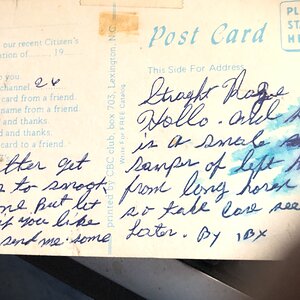 our recent Citizen's
ation of ........, 19....
you
channel 26
card from a friend.
name of a friend
and thanks.
and thanks.
d to a friend.
ther get
s to smoth
me But lot
if you like
send me. some
printed by CBC club, box 703, Lexington, N.C.
Write For FREE Catalog
Post Card
This Side For Address
PL
ST
HE
Straght
Hollo. and
is a smale
sampes of left
from long horen
so take care see
Later. By IBX